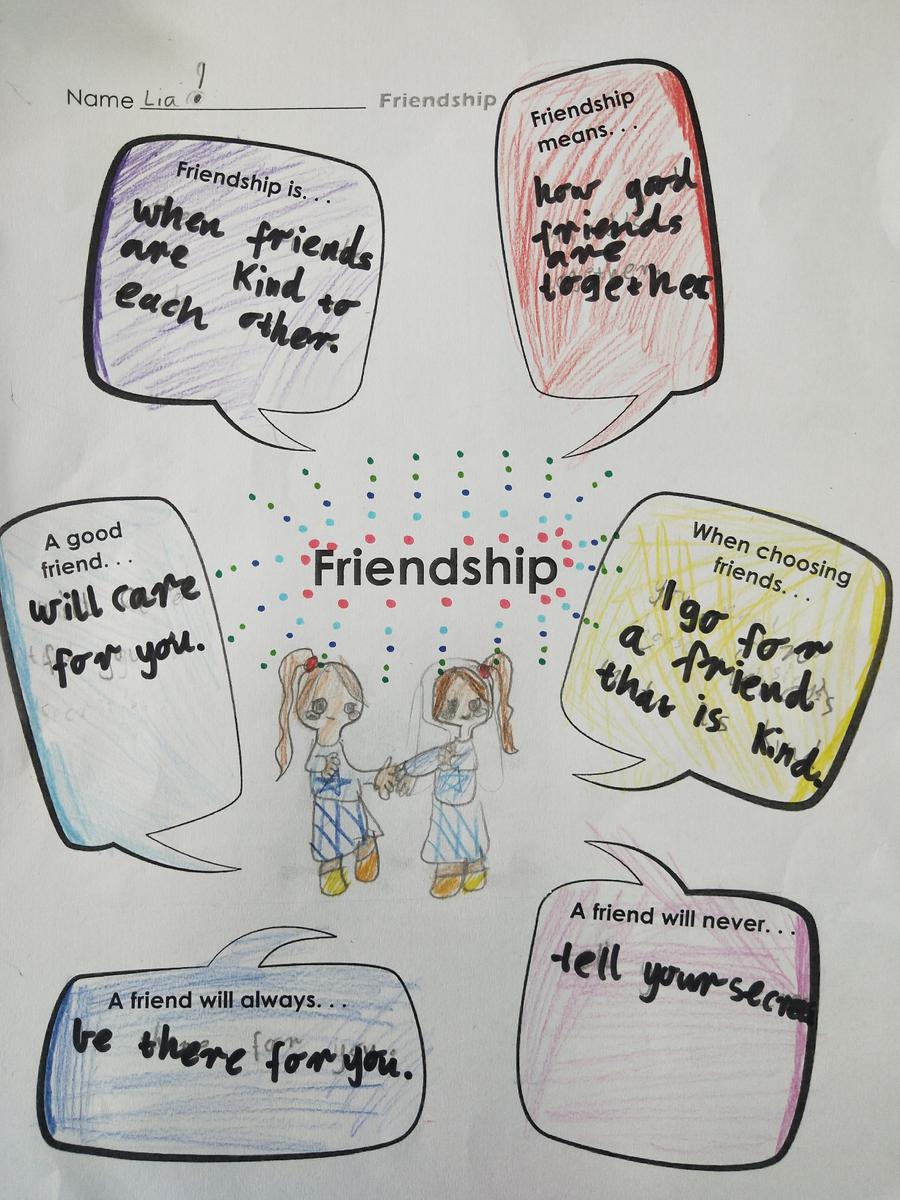 Name Lia ! Friendship
Friendship is. . .
when friends
are kind to
each other.
Friendship
means. . .
how good
friends
are
together
A good
friend. . .
will care
for you.
Friendship
When choosing
friends. . .
I go for
a friend
that is kind.
A friend will always. . .
be there for you.
A friend will never. . .
tell your secret